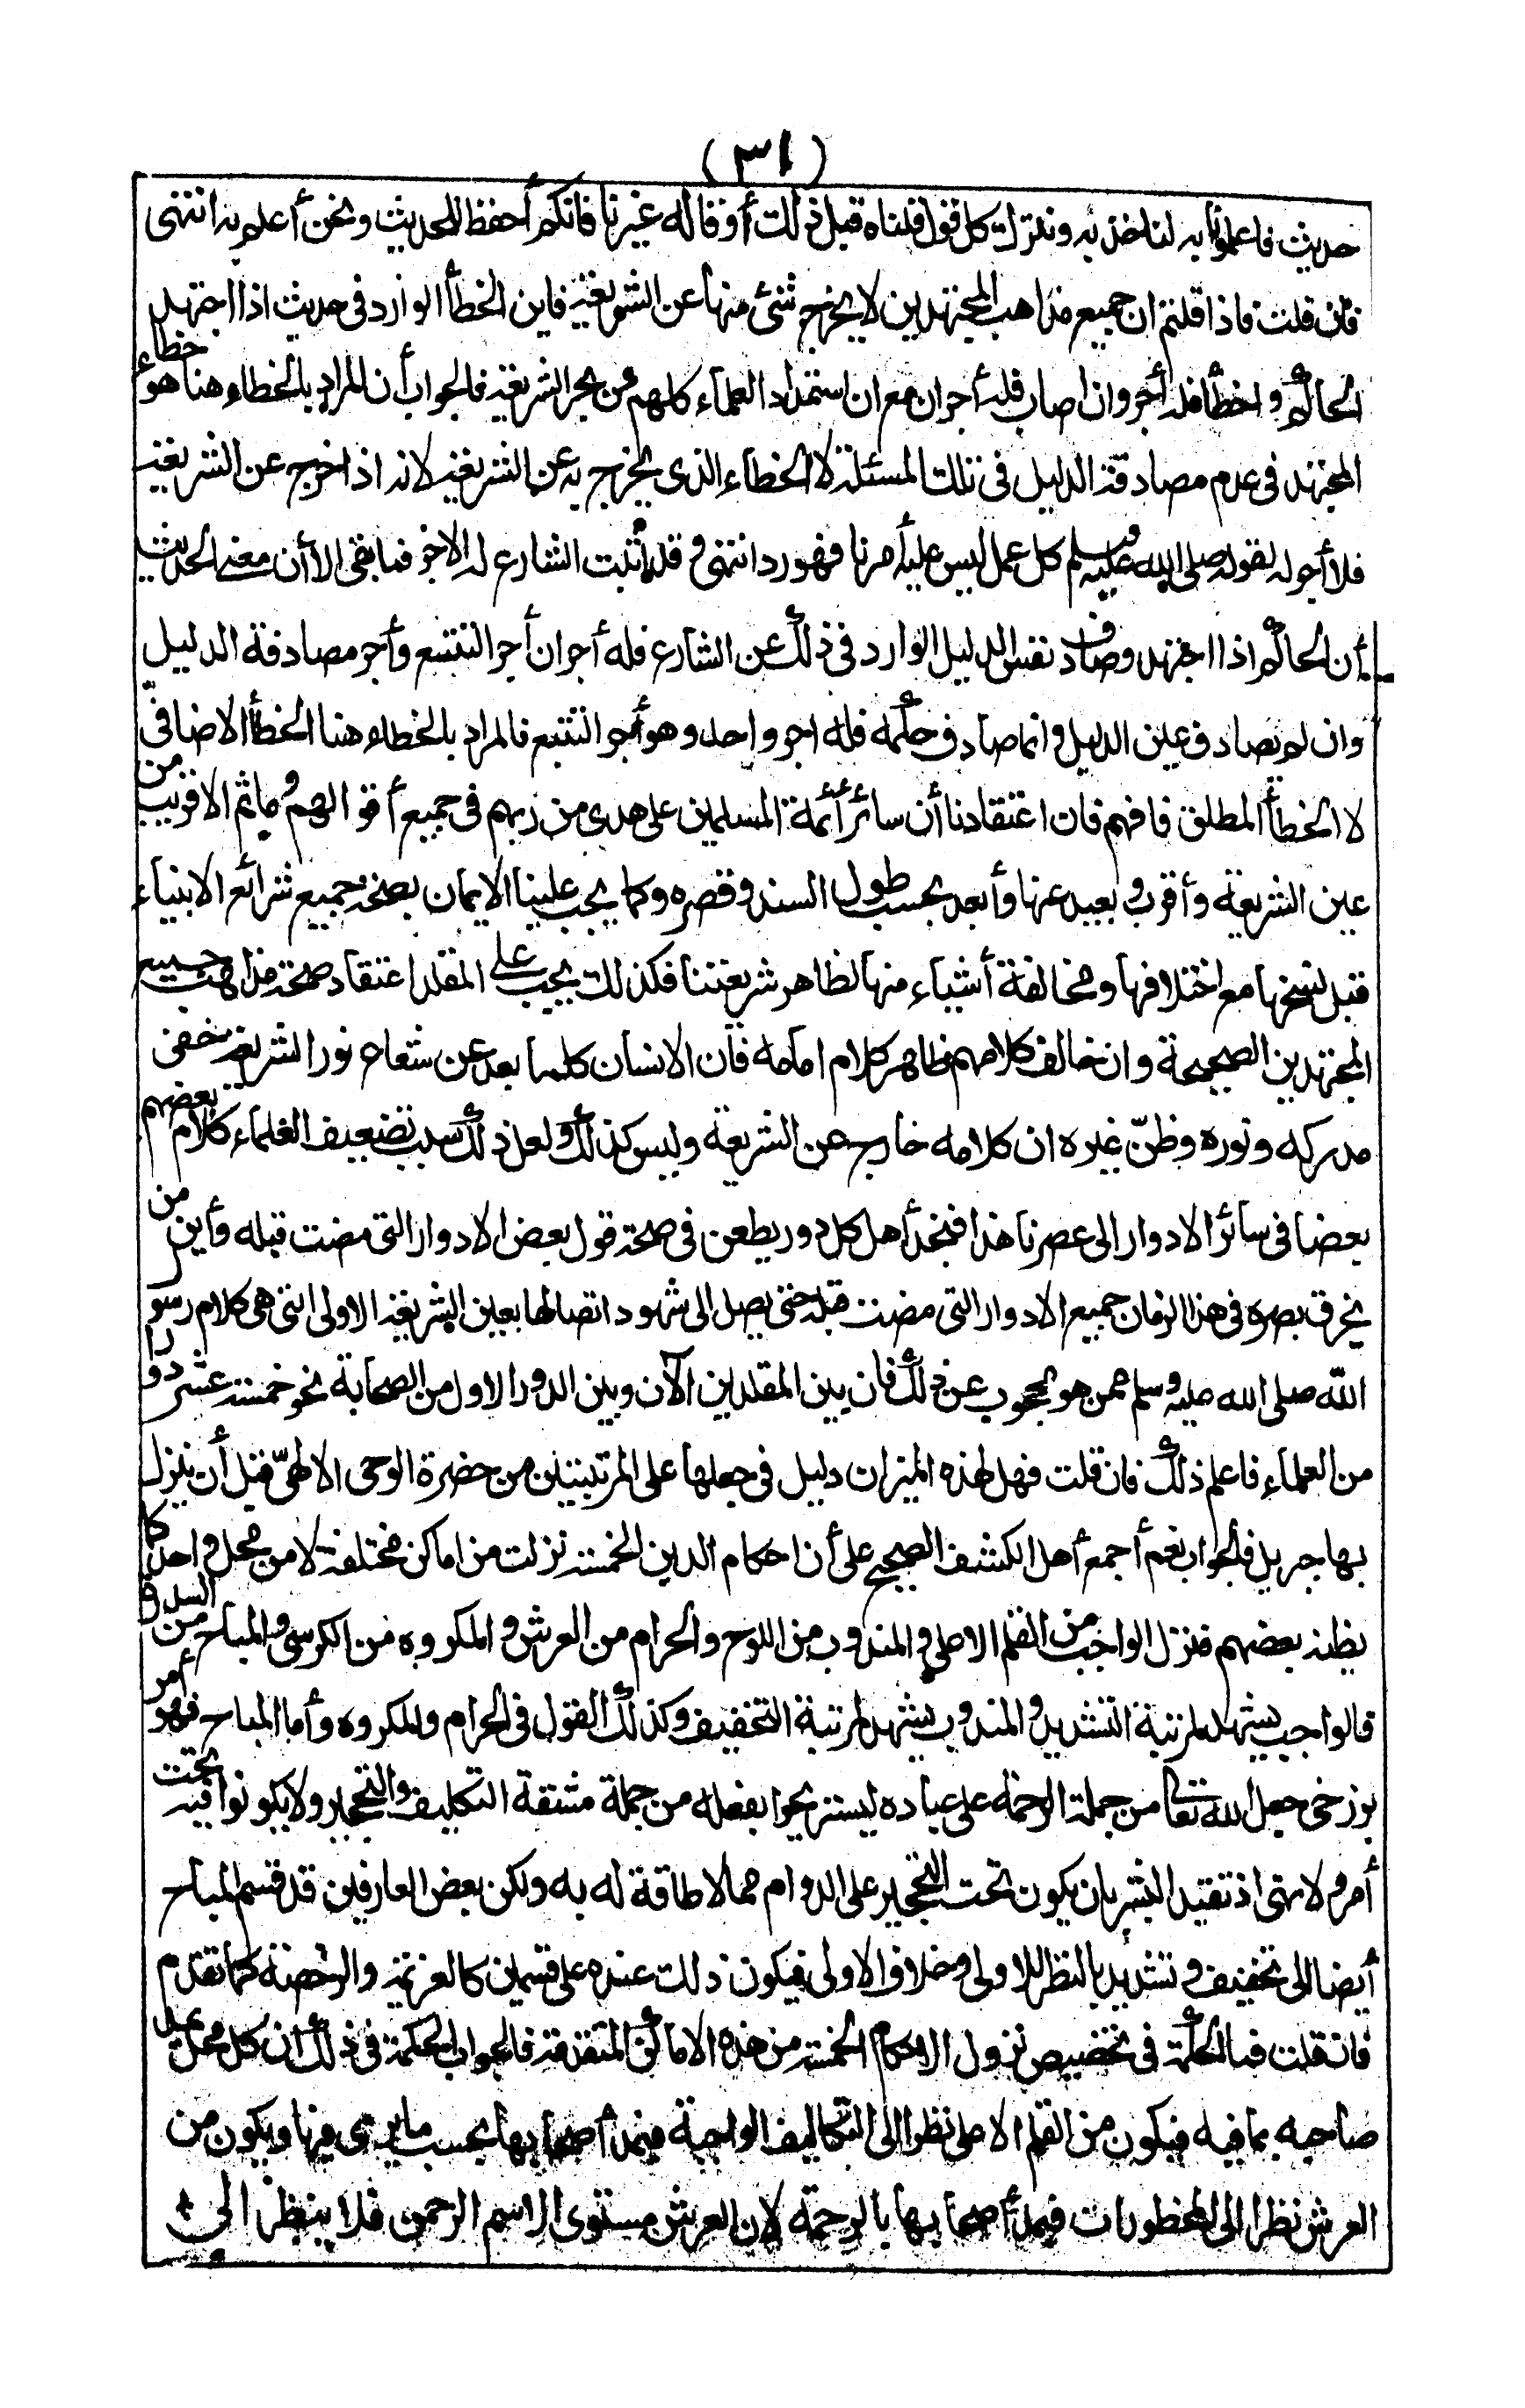 (٣١)
حديث فاعلمونا به لنأخذ به ونترك كل قول قلناه قبل ذلك أو قاله غيرنا فانكم أحفظ للحديث ونحن أعلم به انتهى
فان قلت فاذا قلتم ان جميع مذاهب المجتهدين لا يخرج شئ منها عن الشريعة فاين الخطأ الوارد فى حديث اذا اجتهد
الحاكم واخطأ فله أجر وان اصاب فله أجران مع ان استمداد العلماء كلهم من بحر الشريعة فالجواب أن المراد بالخطاء هنا هو خطاء
المجتهد فى عدم مصادفة الدليل فى تلك المسئلة لا الخطاء الذى يخرج به عن الشريعة لانه اذا خرج عن الشريعة
فلا أجر له لقوله صلى الله عليه وسلم كل عمل ليس عليه أمرنا فهو رد انتهى وقد أثبت الشارع له الاجر فما بقى الا أن معنى الحديث
أن الحاكم اذا اجتهد وصادف نفس الدليل الوارد فى ذلك عن الشارع فله أجران أجر التتبع وأجر مصادفة الدليل
وان لم يصادف عين الدليل وانما صادف حكمه فله اجر واحد وهو أجر التتبع فالمراد بالخطاء هنا الخطأ الاضافىّ
لا الخطأ المطلق فافهم فان اعتقادنا أن سائر أئمة المسلمين على هدى من ربهم فى جميع أقوالهم وما ثم الا قريب من
عين الشريعة وأقرب وبعيد عنها وأبعد بحسب طول السند وقصره وكما يجب علينا الايمان بصحة جميع شرائع الانبياء
قبل نسخها مع اختلافها ومخالفة أشياء منها لظاهر شريعتنا فكذلك يجب على المقلد اعتقاد صحة مذاهب جميع
المجتهدين الصحيحة وان خالف كلامهم ظاهر كلام امامه فان الانسان كلما بعد عن شعاع نور الشريعة خفى
مدركه ونوره وظنّ غيره ان كلامه خارج عن الشريعة وليس كذلك ولعل ذلك سبب تضعيف العلماء كلام بعضهم
بعضا فى سائر الادوار الى عصرنا هذا فتجد أهل كل دور يطعن فى صحة قول بعض الادوار التى مضت قبله وأين من
يخرق بصره فى هذا الزمان جميع الادوار التى مضت قبله حتى يصل الى شهود اتصالها بعين الشريعة الاولى التى هى كلام رسول
الله صلى الله عليه وسلم ممن هو محجوب عن ذلك فان بين المقلدين الآن وبين الدور الاول من الصحابة نحو خمسة عشر دورا
من العلماء فاعلم ذلك فان قلت فهل لهذه الميزان دليل فى جعلها على المرتبتين من حضرة الوحى الالهىّ قبل أن ينزل
بها جبريل فالجواب نعم أجمع أهل الكشف الصحيح على أن احكام الدين الخمسة نزلت من اماكن مختلفة لا من محل واحد كما
يظنه بعضهم فنزل الواجب من القلم الاعلى والمندوب من اللوح والحرام من العرش والمكروه من الكرسى والمباح من السدرة
فالواجب يشهد لمرتبة التشديد والمندوب يشهد لمرتبة التخفيف وكذلك القول فى الحرام والمكروه وأما المباح فهو أمر
برزخى جعل الله تعالى من جملة الرحمة على عباده ليستريحوا بفعله من جملة مشقة التكليف والتحجير ولا يكونوا فيه تحت
أمر ولا نهى اذ تقيد البشر بان يكون تحت التحجير على الدوام مما لا طاقة له به ولكن بعض العارفين قد قسم المباح
أيضا الى تخفيف وتشديد بالنظر للاولى وخلاف الاولى فيكون ذلك عنده على قسمين كالعزيمة والرخصة كما تقدم
فان قلت فما الحكمة فى تخصيص نزول الاحكام الخمسة من هذه الاماكن المتقدمة فالجواب الحكمة فى ذلك أن كل محل يمد
صاحبه بما فيه فيكون من القلم الاعلى نظرا الى التكاليف الواجبة فيمد أصحابها بحسب ما يرى فيها ويكون من
العرش نظرا الى المحظورات فيمد أصحابها بالرحمة لان العرش مستوى الاسم الرحمن فلا ينظر الى